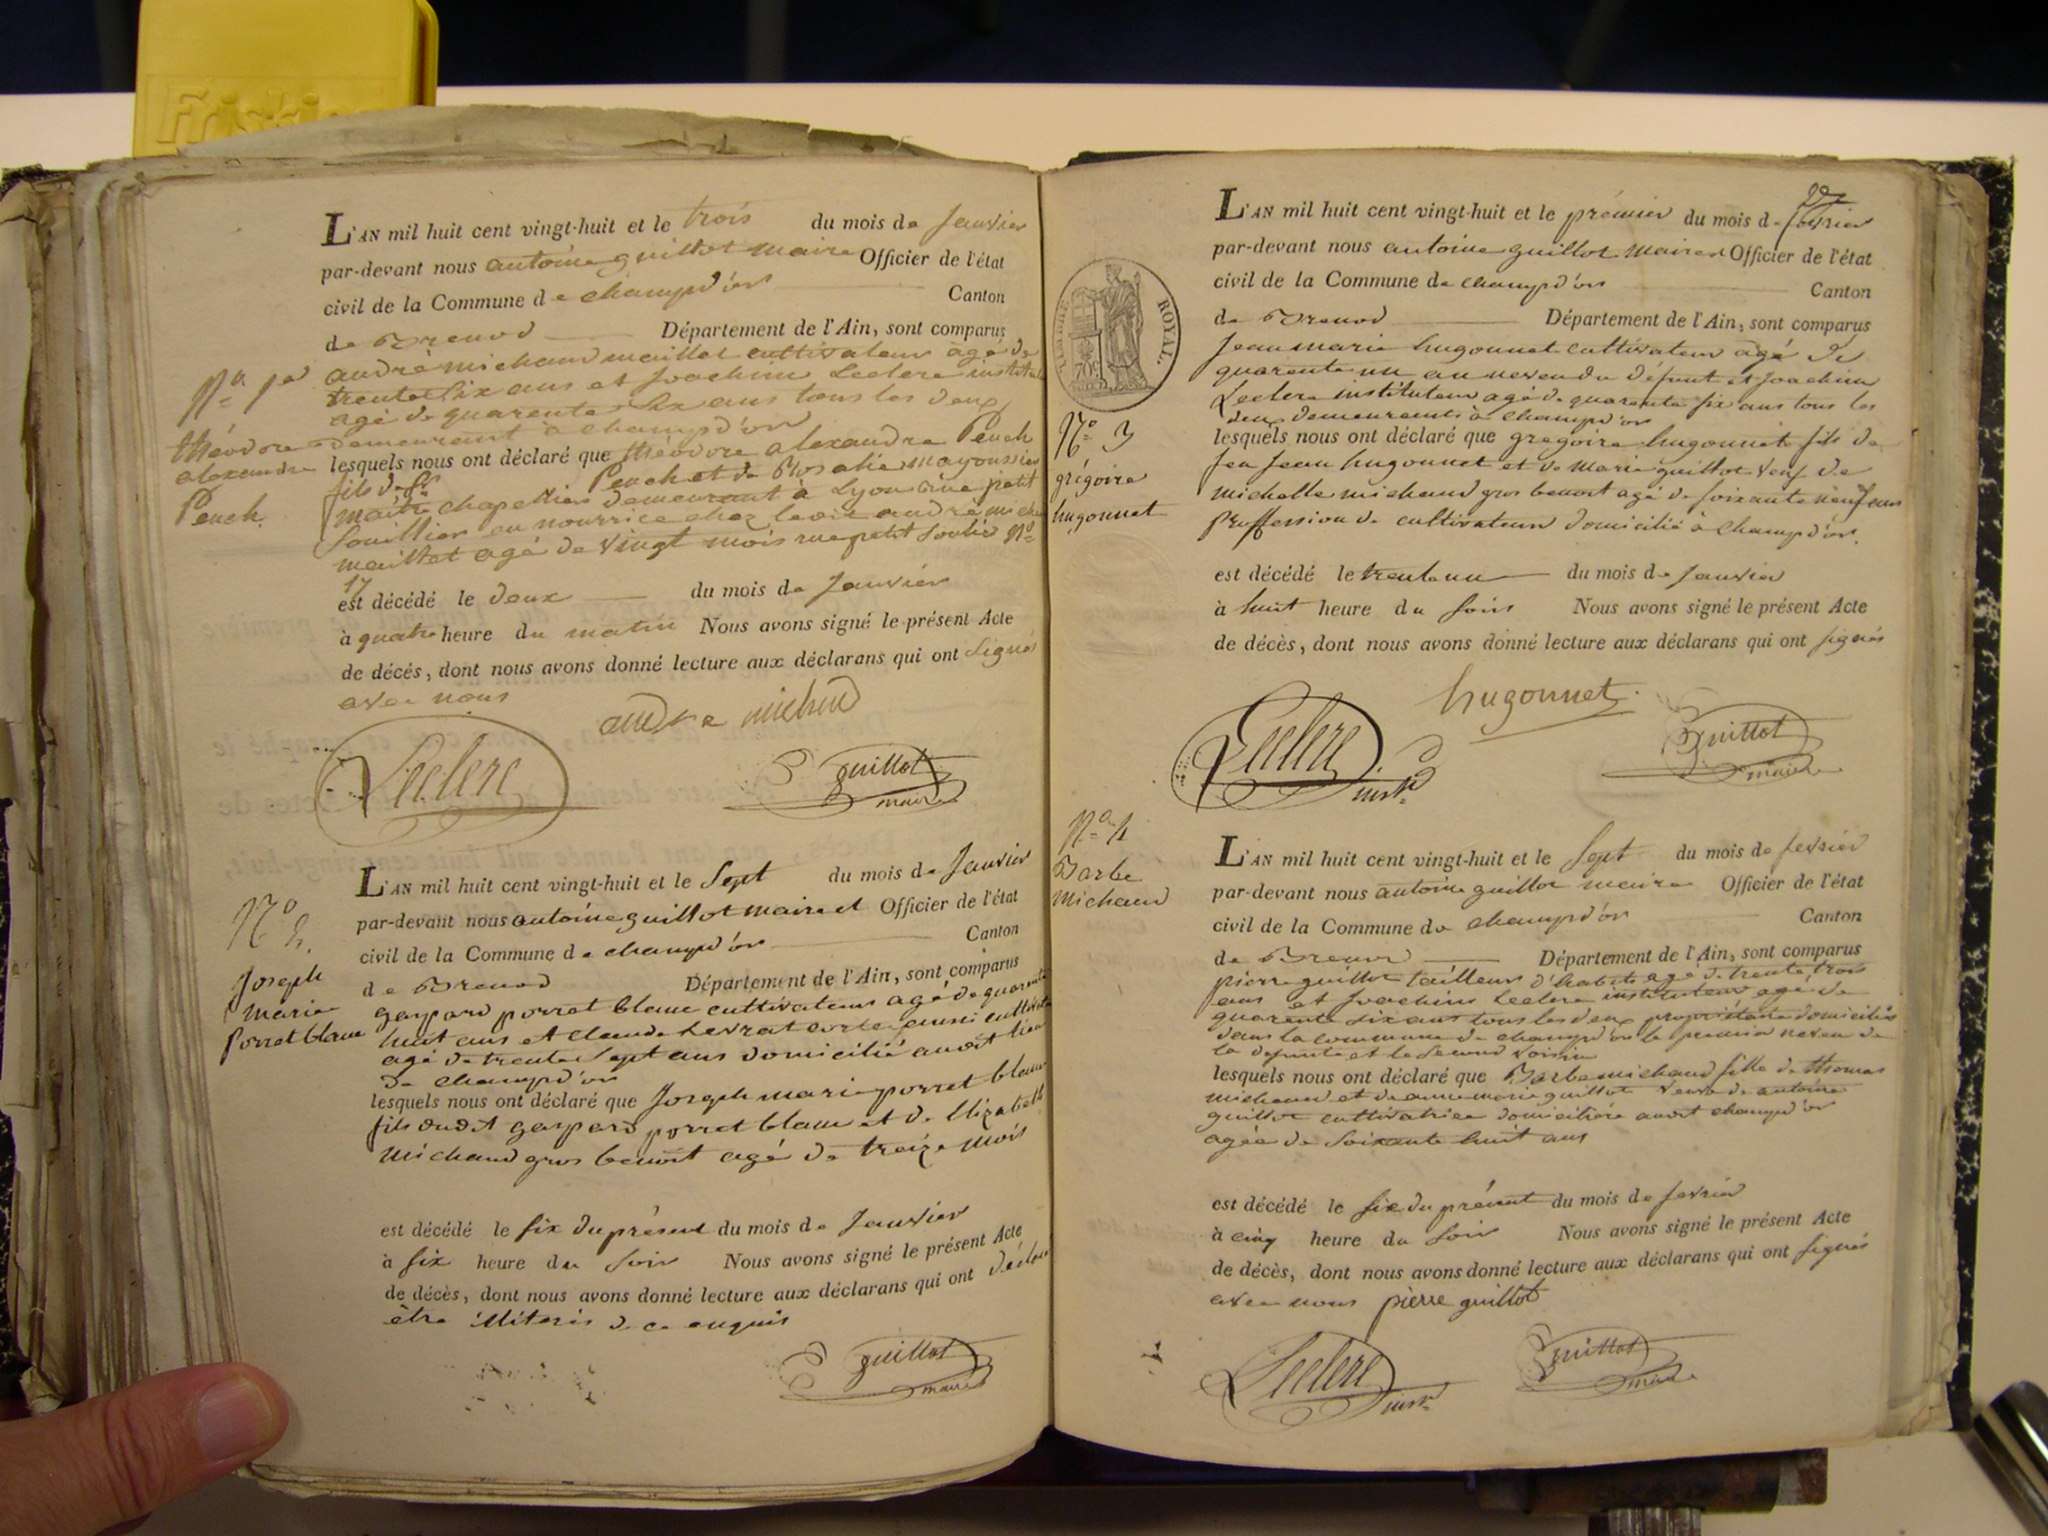 Friskies
L'AN mil huit cent vingt-huit et le trois du mois de Janvier
par-devant nous antoine guillot maire Officier de l'état
civil de la Commune de champd'or Canton
de Brenod Département de l'Ain, sont comparus
andré michaud maillet cultivateur agé de
trente six ans et Joachim Leclerc
agé de quarente six ans tous les deux
demeurant à champd'or
lesquels nous ont déclaré que théodore alexandre Peuch
fils de Peuch et de Rosalie mayoussier
maitre chapellier demeurant à Lyon rue petit
Souillier en nourrice chez ledit andré
maillet agé de vingt mois rue petit Soulié No
17
est décédé le deux du mois de Janvier
à quatre heure du matin Nous avons signé le présent Acte
de décés, dont nous avons donné lecture aux déclarans qui ont signés
avec nous
andre michud
Leclerc
guillot
maire
No 1er
théodore
alexandre
Peuch.
L'AN mil huit cent vingt-huit et le Sept du mois de Janvier
par-devant nous antoine guillot maire et Officier de l'état
civil de la Commune de champd'or Canton
de Brenod Département de l'Ain, sont comparus
gaspard porret blanc cultivateur agé de quarente
huit ans et claude Levrat ausi
agé de trente Sept ans domicilié audit lieu
de champd'or
lesquels nous ont déclaré que Joseph marie porret blanc
fils dudit gaspard porret blanc et de Elizabeth
Michaud gros benoit agé de treize mois
est décédé le six du présent du mois de Janvier
à six heure du soir Nous avons signé le présent Acte
de décès, dont nous avons donné lecture aux déclarans qui ont
être de ce enquis
guillot
maire
No 2.
Joseph
marie
Porret blanc
TIMBRE ROYAL.
L'AN mil huit cent vingt-huit et le prémier du mois de fevrier
par-devant nous antoine guillot maire Officier de l'état
civil de la Commune de champd'or Canton
de Brenod Département de l'Ain, sont comparus
Jean marie hugonnet cultivateur agé de
quarente un an neveu du défunt et Joachim
Leclerc instituteur agé de quarente six ans tous les
deux demeurants à champd'or
lesquels nous ont déclaré que gregoire hugonnet fils de
feu Jean hugonnet et de marie guillot veuf de
michelle michaud gros benoit agé de soixante neuf ans
Proffession de cultivateur domicilié à Champd'or.
est décédé le trente un du mois de Janvier
à huit heure du soir Nous avons signé le présent Acte
de décès, dont nous avons donné lecture aux déclarans qui ont signés
hugonnet
Leclerc
instr
guillot
maire
No 3
grégoire
hugonnet
L'AN mil huit cent vingt-huit et le Sept du mois de fevrier
par-devant nous antoine guillot maire Officier de l'état
civil de la Commune de champd'or Canton
de Brenod Département de l'Ain, sont comparus
pierre guillot tailleur d'habits agé de trente trois
ans et Joachim Leclerc instituteur agé de
quarente six ans tous les deux propriétaire domiciliés
dans la commune de champd'or le premier neveu de
la defunte et le Second voisin
lesquels nous ont déclaré que Barbe michaud fille de thomas
michaud et de anne marie guillot veuve de antoine
guillot cultivatrice domiciliée audit champd'or
agée de soixante huit ans
est décédé le six du présent du mois de fevrier
à cinq heure du soir Nous avons signé le présent Acte
de décès, dont nous avons donné lecture aux déclarans qui ont signés
avec nous pierre guillot
Leclerc
instr
guillot
maire
No 4
Barbe
Michaud